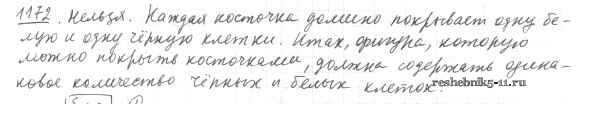 1172. Нельзя. Каждая косточка домино покрывает одну бе-
лую и одну чёрную клетки. Итак, фигура, которую
можно покрыть косточками, должна содержать одина-
ковое количество чёрных и белых клеток.
reshebnik5-11.ru